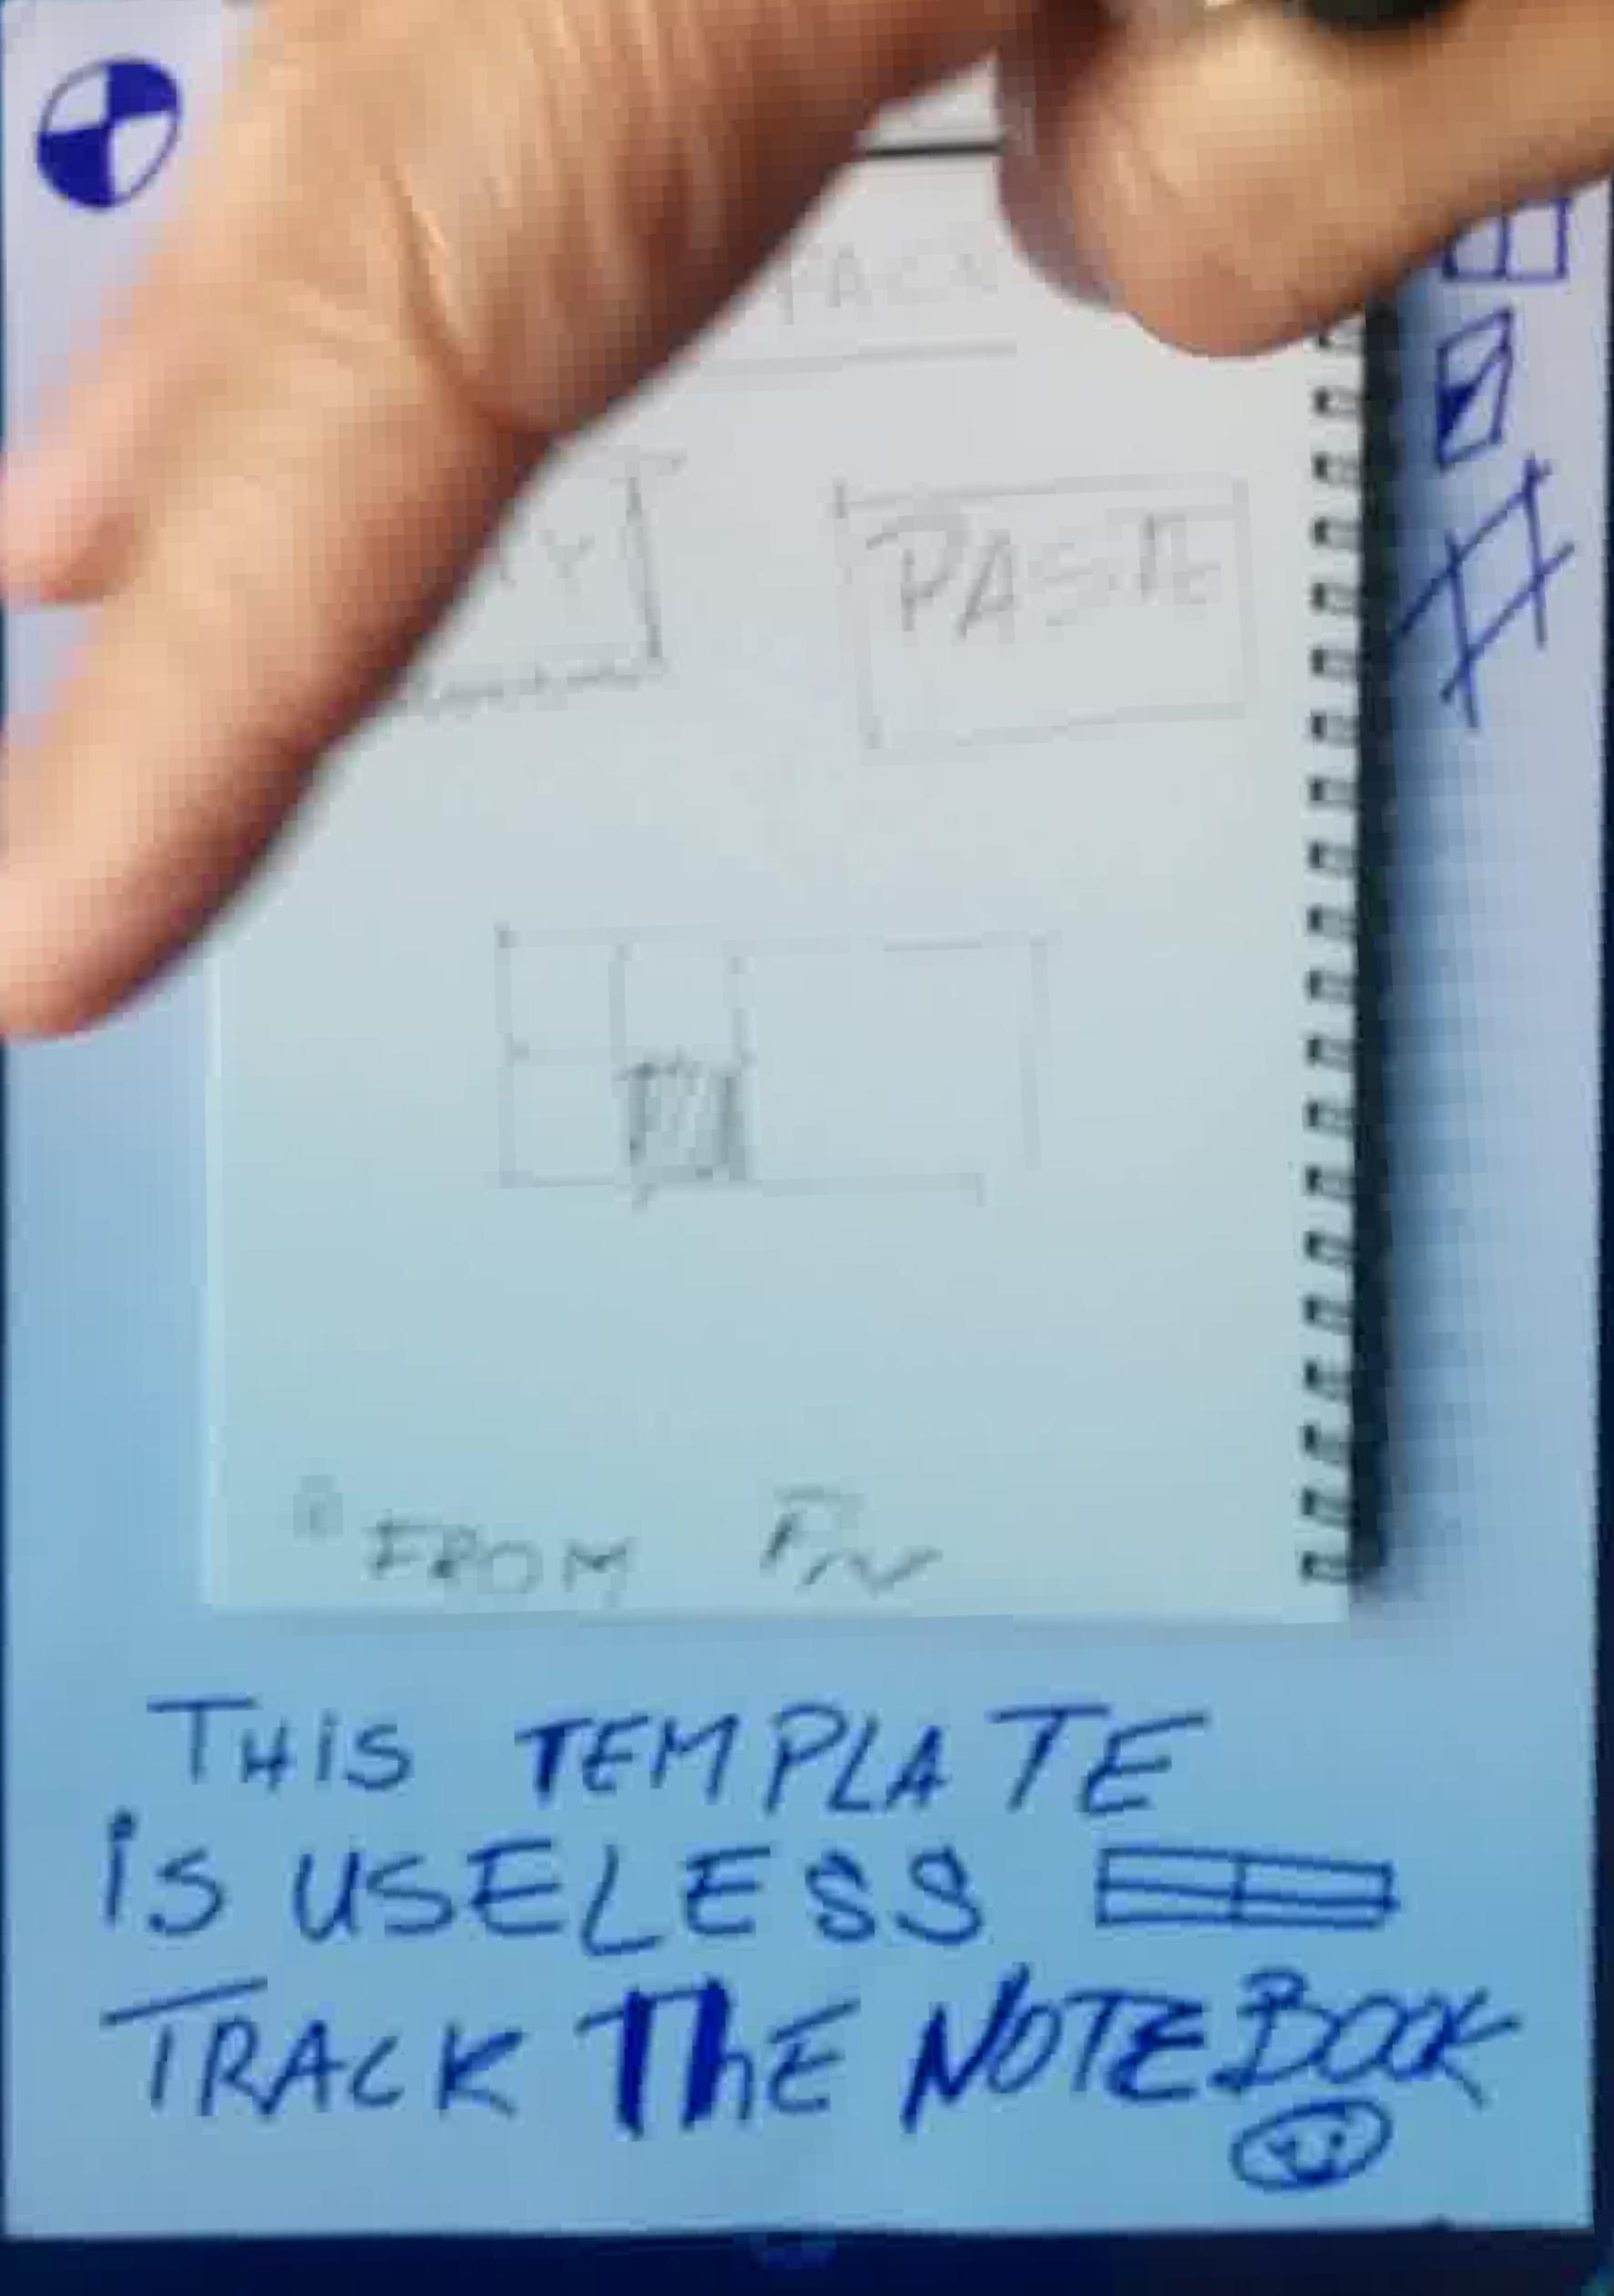 PASTE
FROM
THIS TEMPLATE
iS USELESS
TRACK ThE NOTEBOOK